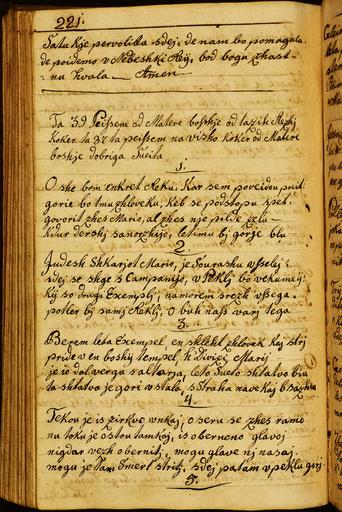 221.
Satu kje pervolila sdej: de nam bo pomagala
de poidemo v Nebeshki Rÿ, bod bogu zhast
nu hvala — Amen —
Ta 39 Peissem od Matere boshje od
Koker ta 37 ta peissem na visho koker od Matere
boshje dobriga Sueita
1.
O she bom enkret reku. Kar sem poveidou preit
gorie bo tmu zhloveku, kel se podstopu spet.
govorit zhes Mario, al zhes nje pilde zelu
kdur dershj sanozhuje, letimu bj gorje blu
2.
Judesh Shkarjot Mario, je Sourashu vsselej
sdej se shge s Compani
Kÿ so drugi Exemplj, namorem srezh vssega
potler bj samj rekli, O buh nass varj tega
3.
Berem leta Exempel en zhlovek kaj strj
pride v en boshij tempel, k Divizi Marij
je io dol vergu s altarja, leto Sueto shtatvo biu
ta shtatvo je gori vstala, sStraha nave kaj b
4.
Tekou je is zirkve vnkaj, o seru se zhes ramo
nu toku je ostou tamkej, is oberneno glavoj
nigdar vezh obernitj, mogu glave nj nasaj
mogu je Tam Smert stritj, sdej patam v peklu gorj
5.